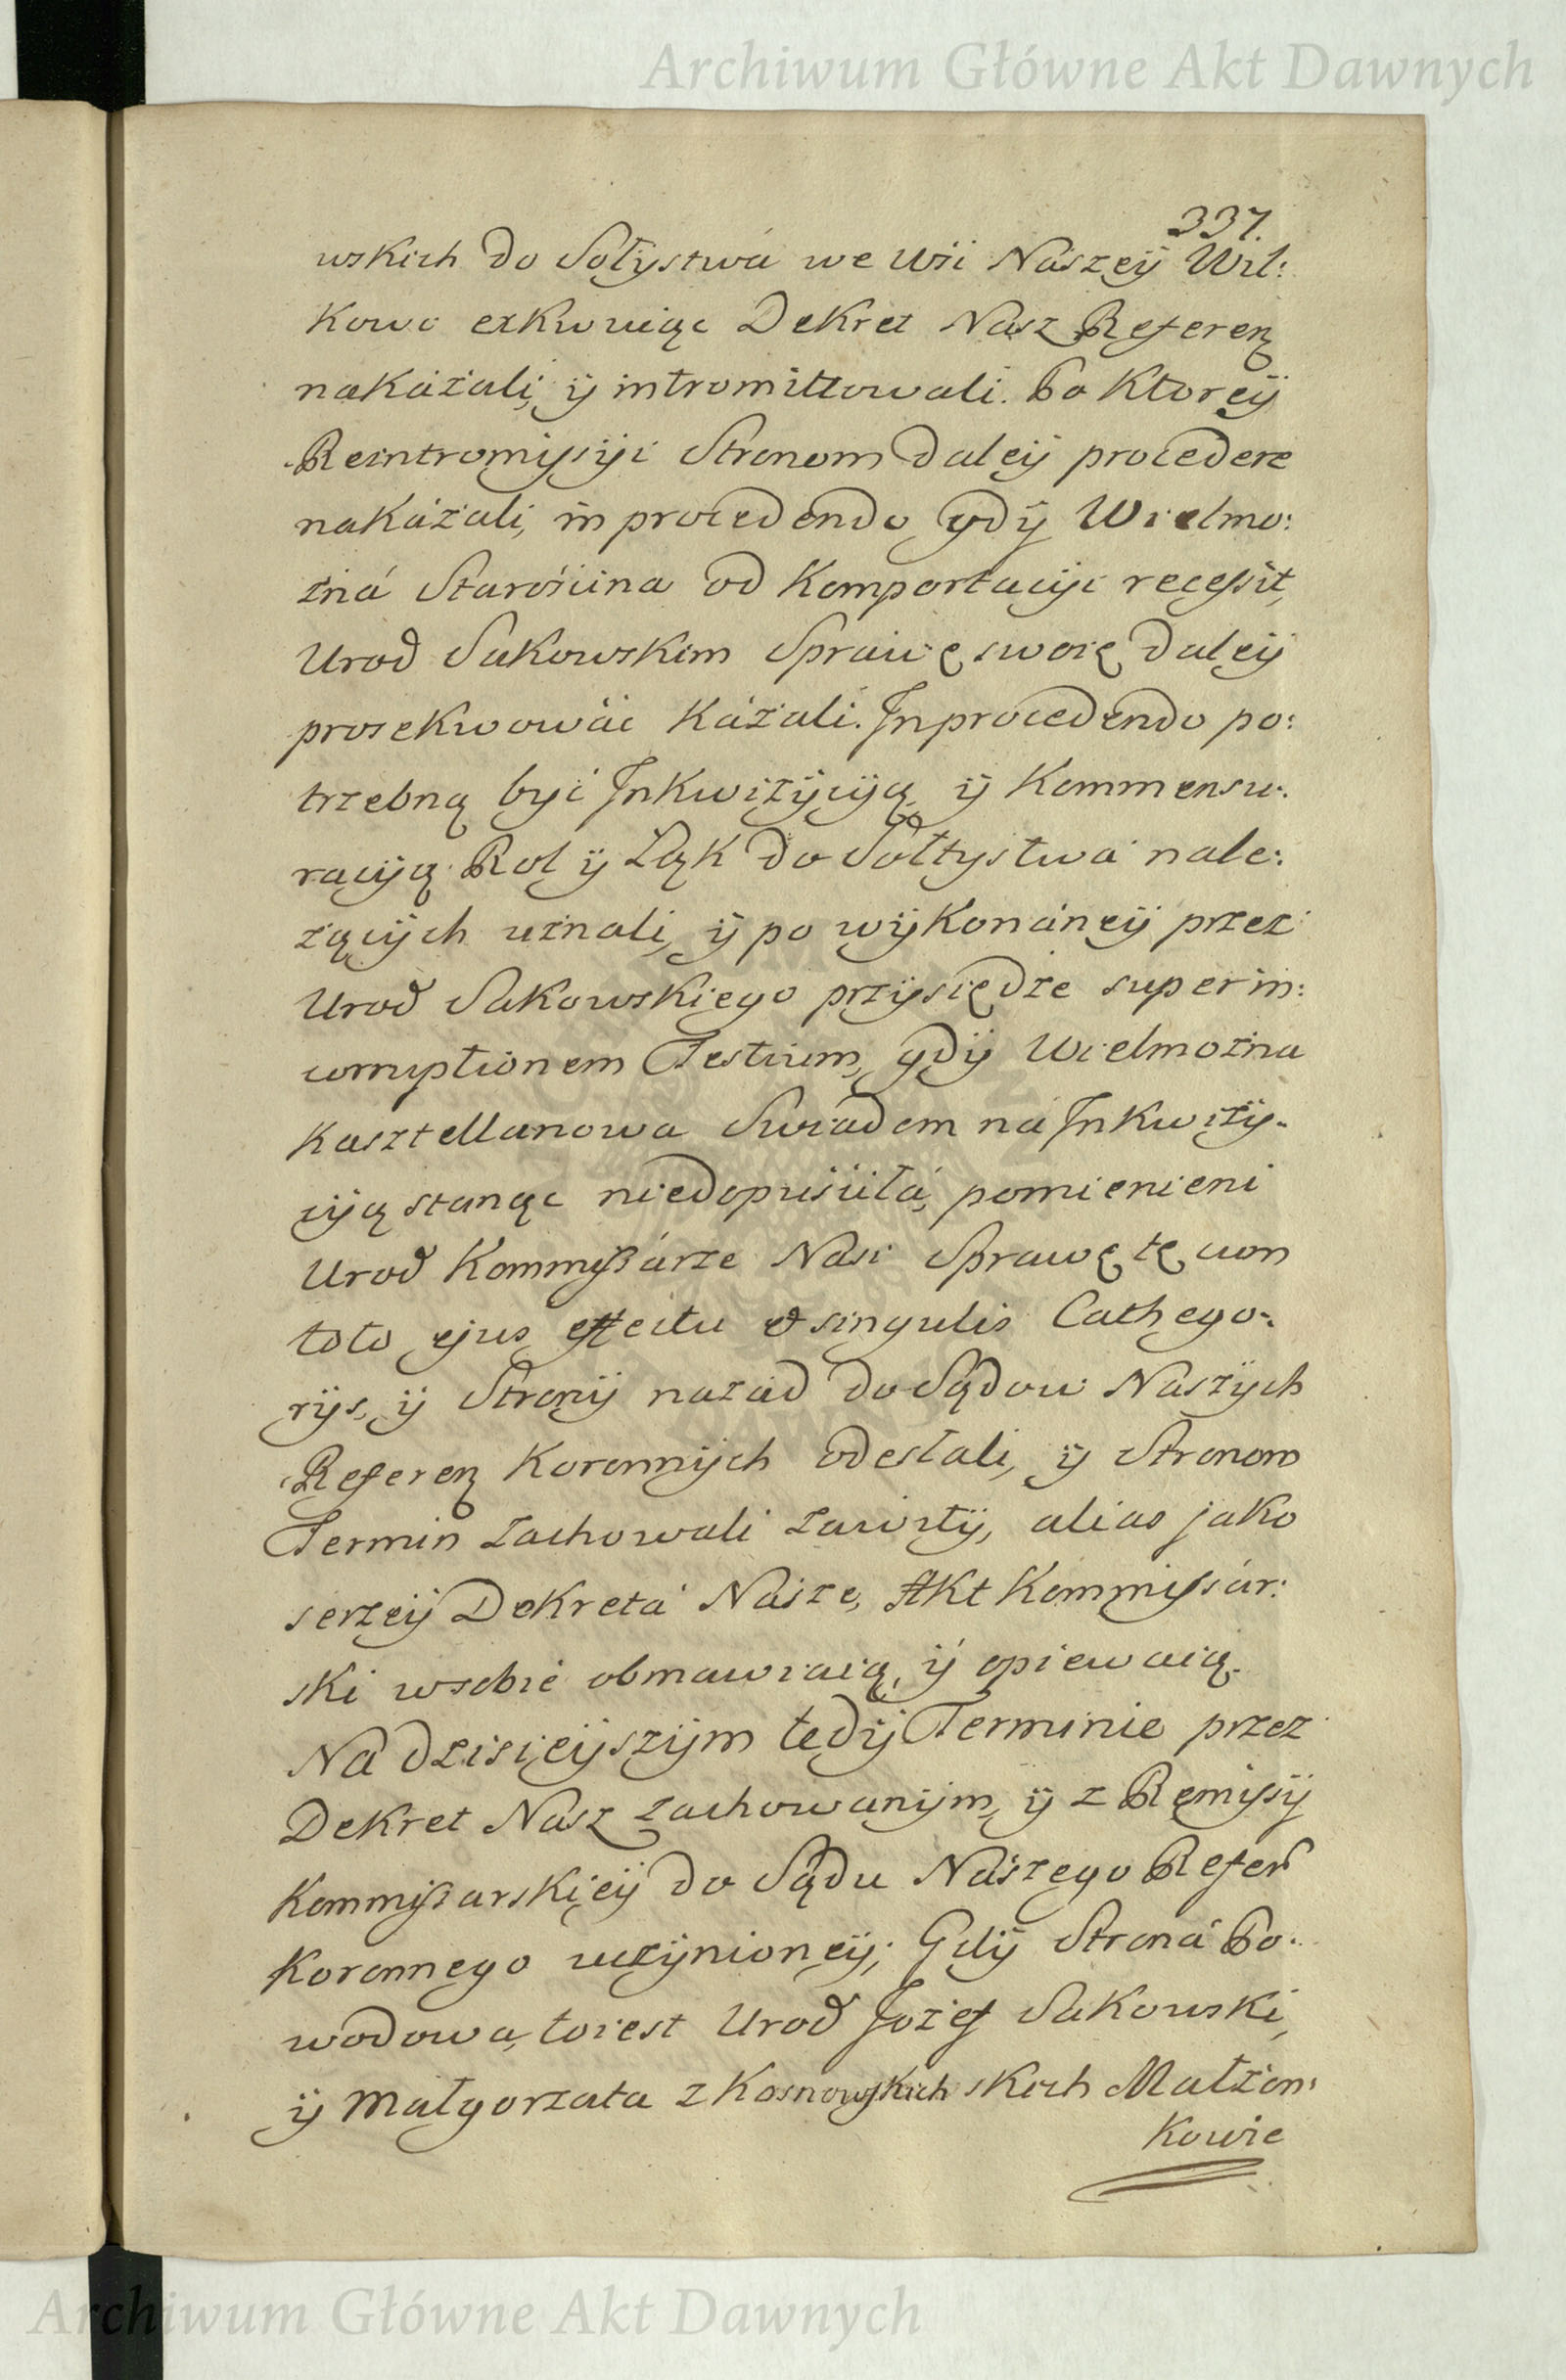 Archiwum Główne Akt Dawnych
337.
wskich do Sołystwá we Wsi Nászeÿ Wil:
kowo exkwuiąc Dekret Nasz Referen
nakázali, ÿ intromittowali. Po Ktoreÿ
Reintromissÿi Stronom daleÿ procedere
nakázali, in procedendo gdÿ Wielmo:
zná Starościna od Komportacÿi recessit,
Urod Sakowskim Sprawę swoię daleÿ
prosekwowáć kázali. In procedendo po:
trzebną byći Inkwizÿcÿą, ÿ Kommensu:
racÿą Rol ÿ Łąk do Sołtystwá nale:
żącÿch uznali, ÿ po wÿkonáneÿ przez
Urod Sakowskiego przÿsiędze super in:
corruptionem Testium, gdÿ Wielmożna
Kasztellanowa Swiadom ná Inkwizÿ:
cÿą stanąć niedopuściłá, pomienieni
Urod Kommissárze Nasi Sprawę tę cum
toto ejus effectu & singulis Cathego:
rÿs, ÿ Stronÿ nazád do Sądow Naszÿch
Referen Koronnÿch odesłali, ÿ Stronom
Termin zachowali zawitÿ, alias jako
serzeÿ Dekretá Násze, Akt Kommissár:
ski w sobie obmawiaią, ÿ opiewaią.
Ná dzisieÿszÿm tedÿ Terminie przez
Dekret Nász zachowanÿm, ÿ z Remissÿ
Kommissarskieÿ do Sądu Nászego Refer
Koronnego uczÿnioneÿ; Gdÿ Stroná Po:
wodowa, to iest Urod Jozef Sakowski,
ÿ Małgorzata z Kosnowskich skich Małżon:
kowie
Archiwum Główne Akt Dawnych